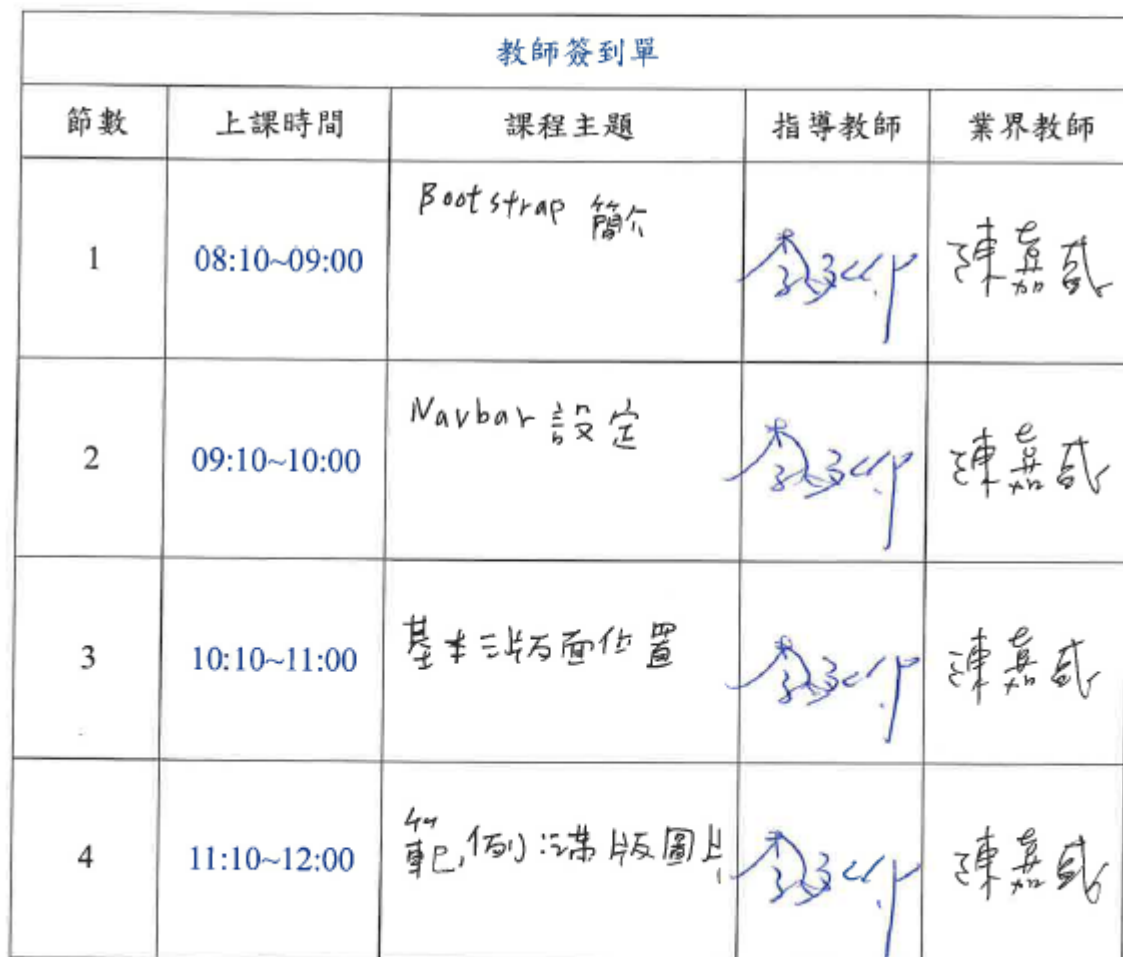 教師簽到單
節數 上課時間 課程主題 指導教師 業界教師
1 08:10~09:00 Bootstrap 簡介 陳嘉
2 09:10~10:00 Navbar 設定 陳嘉
3 10:10~11:00 基本三版面位置 陳嘉
4 11:10~12:00 範例:滿版圖片 陳嘉